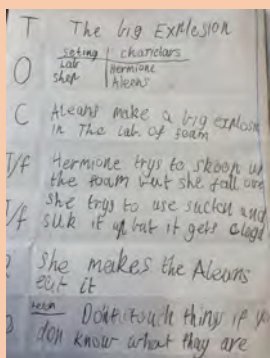 T The big Explesion
O seting | charictars
Lab | Hermione
Shep | Aleans
C Aleans make a big explosn
in The Lab of foam
T/f Hermione trys to skoop up
the foam but she fall over
T/f she trys to use suckn and
suk it up but it gets clogd
she makes the Aleans
eat it
Don't touch things if you
don know what thay are